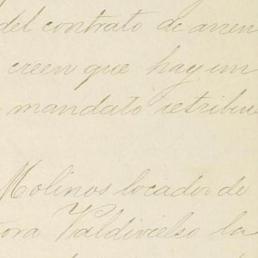 del contrato de arren
creen que hay un
mandato retribu
Molinos locador de
ora Valdivielso la